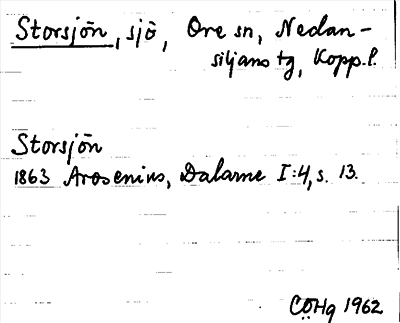 Storsjön, sjö, Ore sn, Nedan-
siljans tg, Kopp.l.
Storsjön
1863 Arosenius, Dalarne I:4, s. 13.
CÖHg 1962